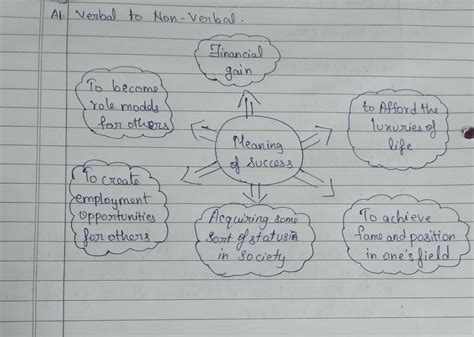 A1. Verbal to Non-Verbal.
Financial
gain
To become
role models
for others
to Afford the
luxuries of
life
Meaning
of success
To create
employment
opportunities
for others
Acquiring some
sort of status in
in society
To achieve
fame and position
in one's field